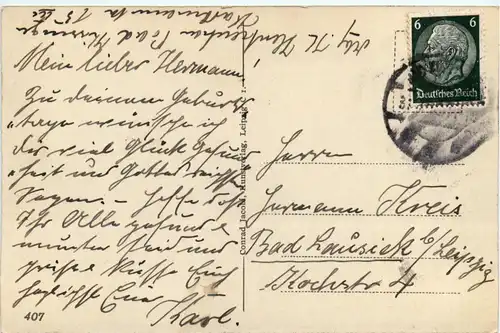 Mein lieber Hermann,
Zu deinem Geburts
tage wünsche ich
dir viel Glück Gesund
heit und Gottes reichsten
Segen. Hoffe daß
Ihr Alle gesund u
munter seid und
grüße Küsse Euch
herzlichst Euer
Karl.
407
Conrad Jacobi, Kunstverlag, Leipzig
6 6
Deutsches Reich
Herrn
Hermann Kreis
Bad Lausick b/Leipzig
Kochstr 4